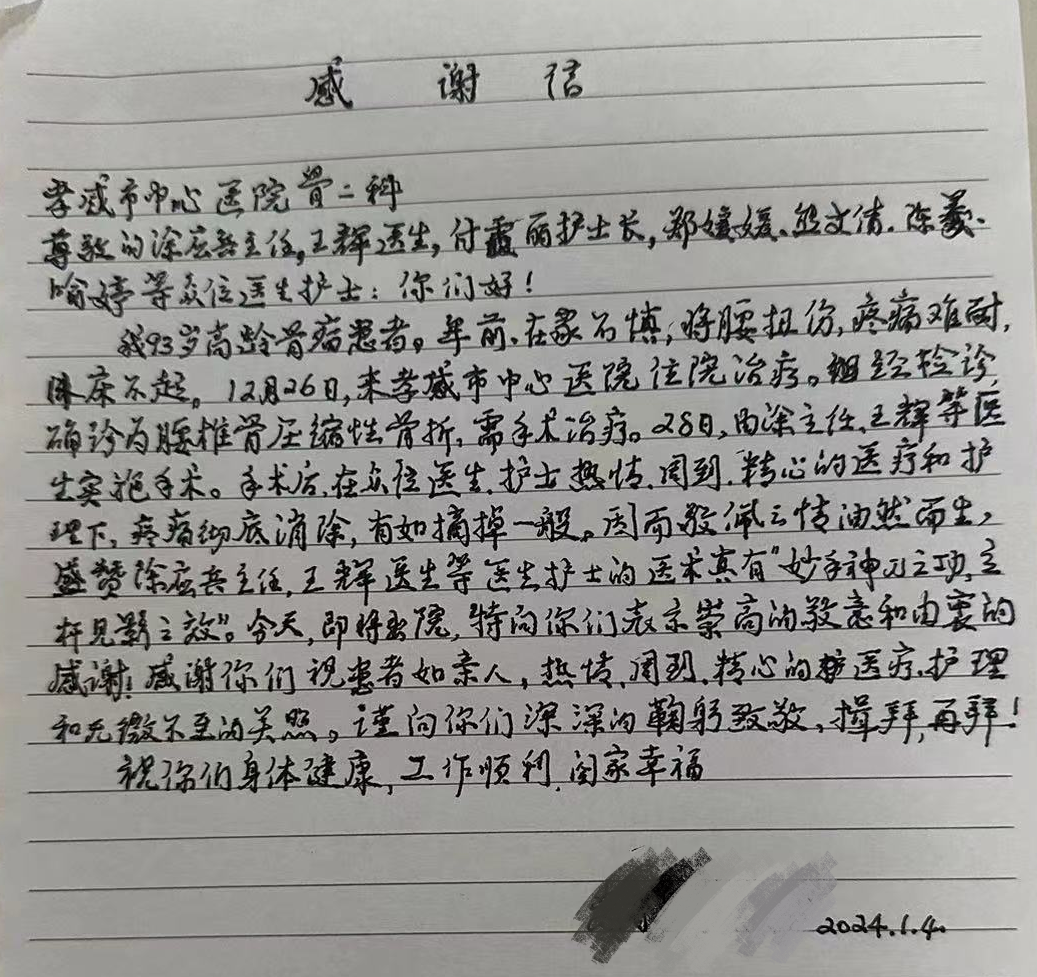 感谢信
孝感市中心医院骨二科
尊敬的涂应兵主任,王辉医生,付霞丽护士长,郑媛媛、熊文倩、陈羲、
喻婷等众位医生护士:你们好!
我93岁高龄骨病患者。年前、在家不慎,将腰扭伤,疼痛难耐,
卧床不起。12月26日,来孝感市中心医院住院治疗。经检诊
确诊为腰椎骨压缩性骨折,需手术治疗。28日,由涂主任、王辉等医
生实施手术。手术后,在众位医生、护士热情、周到、精心的医疗和护
理下,疼痛彻底消除,有如摘掉一般。因而敬佩之情油然而生,
盛赞涂应兵主任,王辉医生等医生护士的医术真有"妙手神刀之功,立
杆见影之效"。今天,即将出院,特向你们表示崇高的敬意和由衷的
感谢!感谢你们视患者如亲人,热情、周到、精心的医疗、护理
和无微不至的关照。谨向你们深深的鞠躬致敬,揖拜,再拜!
祝你们身体健康,工作顺利、阖家幸福
2024.1.4.